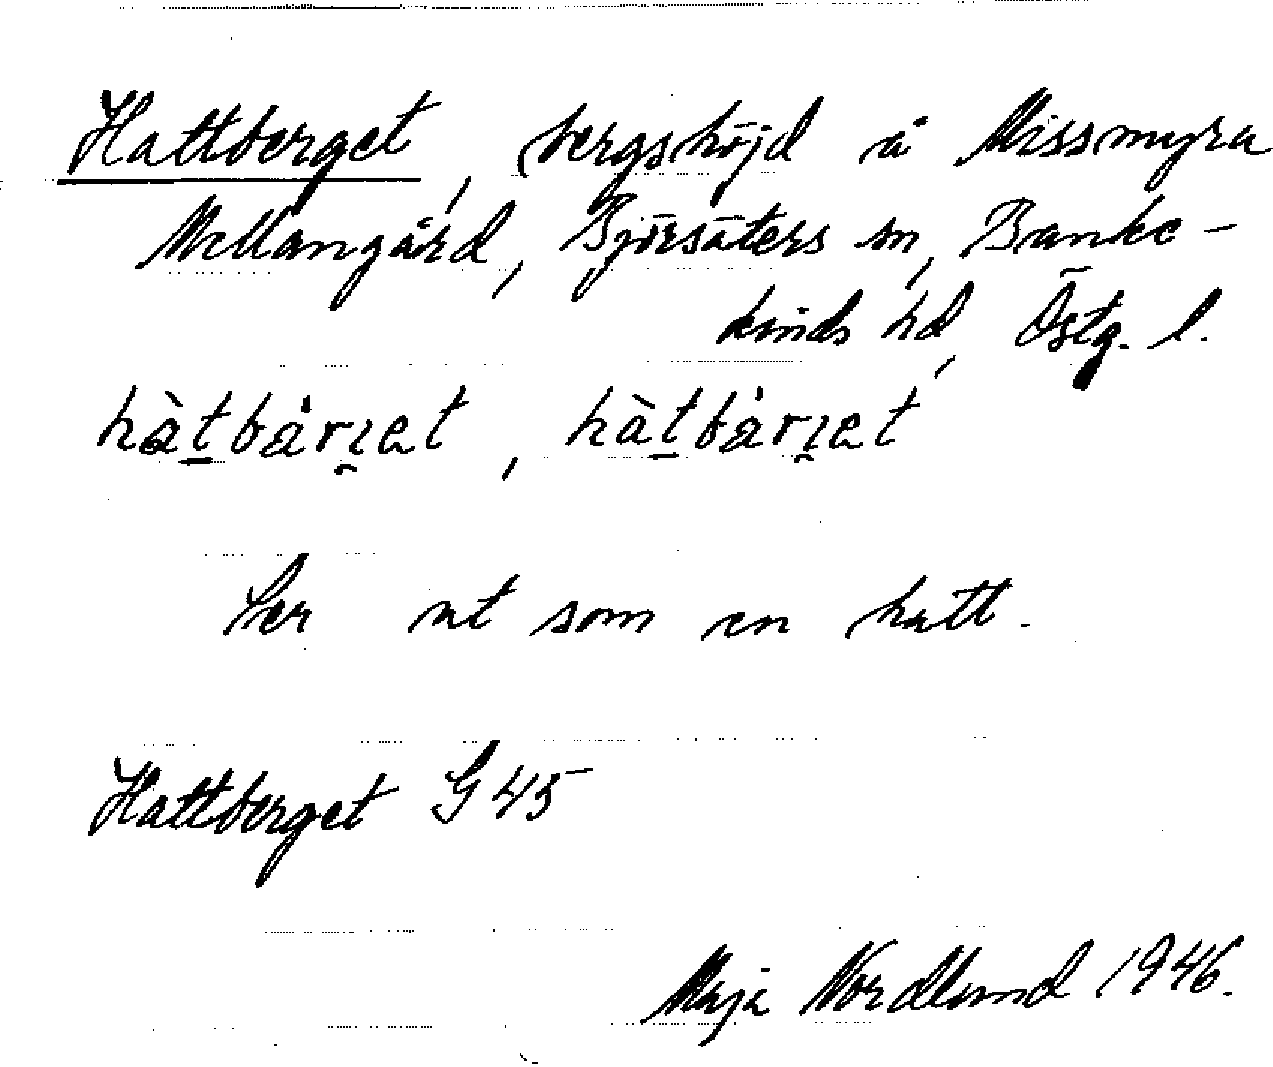 Hattberget, bergshöjd å Missmyra
Mellangård, Björsäters sn, Banke-
kinds hd, Östg. l.
hàt̲bá̇rı̯et, hàt̲bá̇rı̯et
Ser ut som en hatt.
Hattberget G 45
Maja Nordlund 1946.